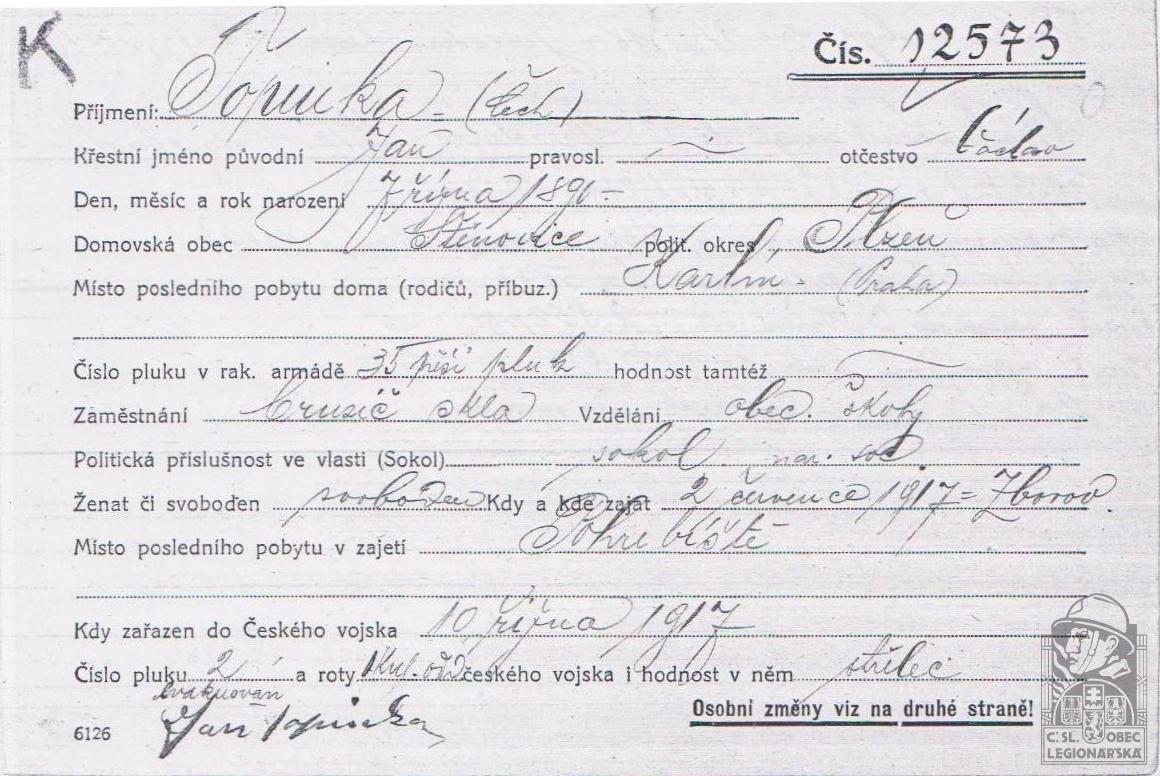 K
Čís. 12573
Příjmení: Topinka - (Čech)
Křestní jméno původní Jan pravosl. — otčestvo Václav
Den, měsíc a rok narození 7 října 1890 -
Domovská obec Štěnovice polit. okres Plzeň
Místo posledního pobytu doma (rodičů, příbuz.) Karlín - (Praha)
Číslo pluku v rak. armádě 35 pěší pluk hodnost tamtéž —
Zaměstnání brusič skla Vzdělání obec. školy
Politická příslušnost ve vlasti (Sokol) sokol nar. soc.
Ženat či svoboden svoboden Kdy a kde zajat 2 července 1917 = Zborov
Místo posledního pobytu v zajetí Pohřebiště
Kdy zařazen do Českého vojska 10. října 1917
Číslo pluku 2 a roty 1 kul. odd českého vojska i hodnost v něm střelec
evakuován
Jan Topinka
Osobní změny viz na druhé straně!
6126
ČSL. OBEC
LEGIONÁŘSKÁ